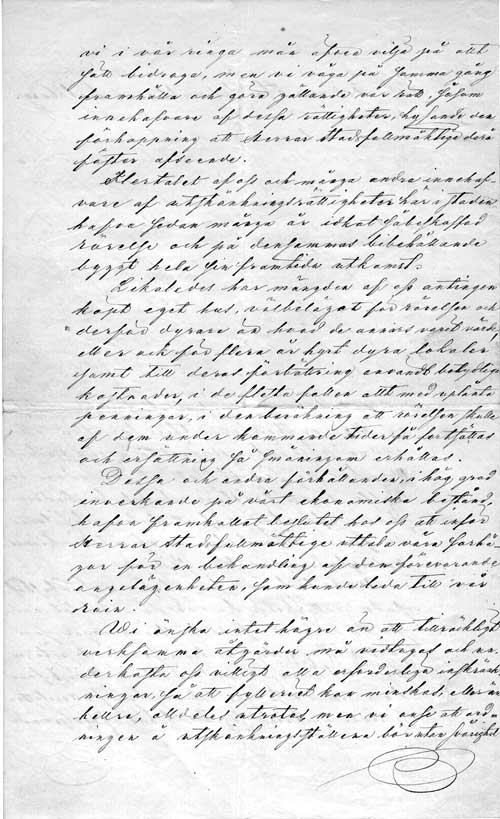 vi i vår ringa mån äfven vilja på allt
sätt bidraga, men vi våga på samma gång
framhålla och göra gällande vår rätt, såsom
innehafvare af dessa rättigheter, hysande den
förhoppning att Herrar Stadsfullmäktige dera
fäster afseende.
Flertalet af oss och många andra innehaf-
vare af utskänkningsrättigheter här i staden
hafva sedan många år idkat sabekostad
rörelse och på densammas bibehållande
byggt hela sin framtida utkomst.
Likaledes har mängden af oss antingen
köpt eget hus, välbeläget för rörelsen och
derför dyrare än hvad de annars varit värdt,
eller ock för flera år hyrt dyra lokaler
samt till deras förbättring användt betydliga
kostnader, i de flesta fallen allt med upplånta
penningar, i den beräkning att rörelsen skulle
af dem under kommande tider få fortsättas
och ersättning så småningom erhållas.
Dessa och andra förhållanden, i hög grad
inverkande på vårt ekonomiska bestånd,
hafva framkallat beslutet hos oss att inför
Herrar Stadsfullmäktige uttala våra farhå-
gor för en behandling af den förevarande
angelägenheten, som kunde leda till vår
ruin.
Vi önska intet högre än att tillräckligt
verksamma åtgärder må vidtagas och un-
derkasta oss villigt alla erforderliga inskränk-
ningar, så att fylleriet kan minskas, eller än
hellre, alldeles utrotas, men vi anse att ord-
ningen å utskänkningsställena bör utan svårighet